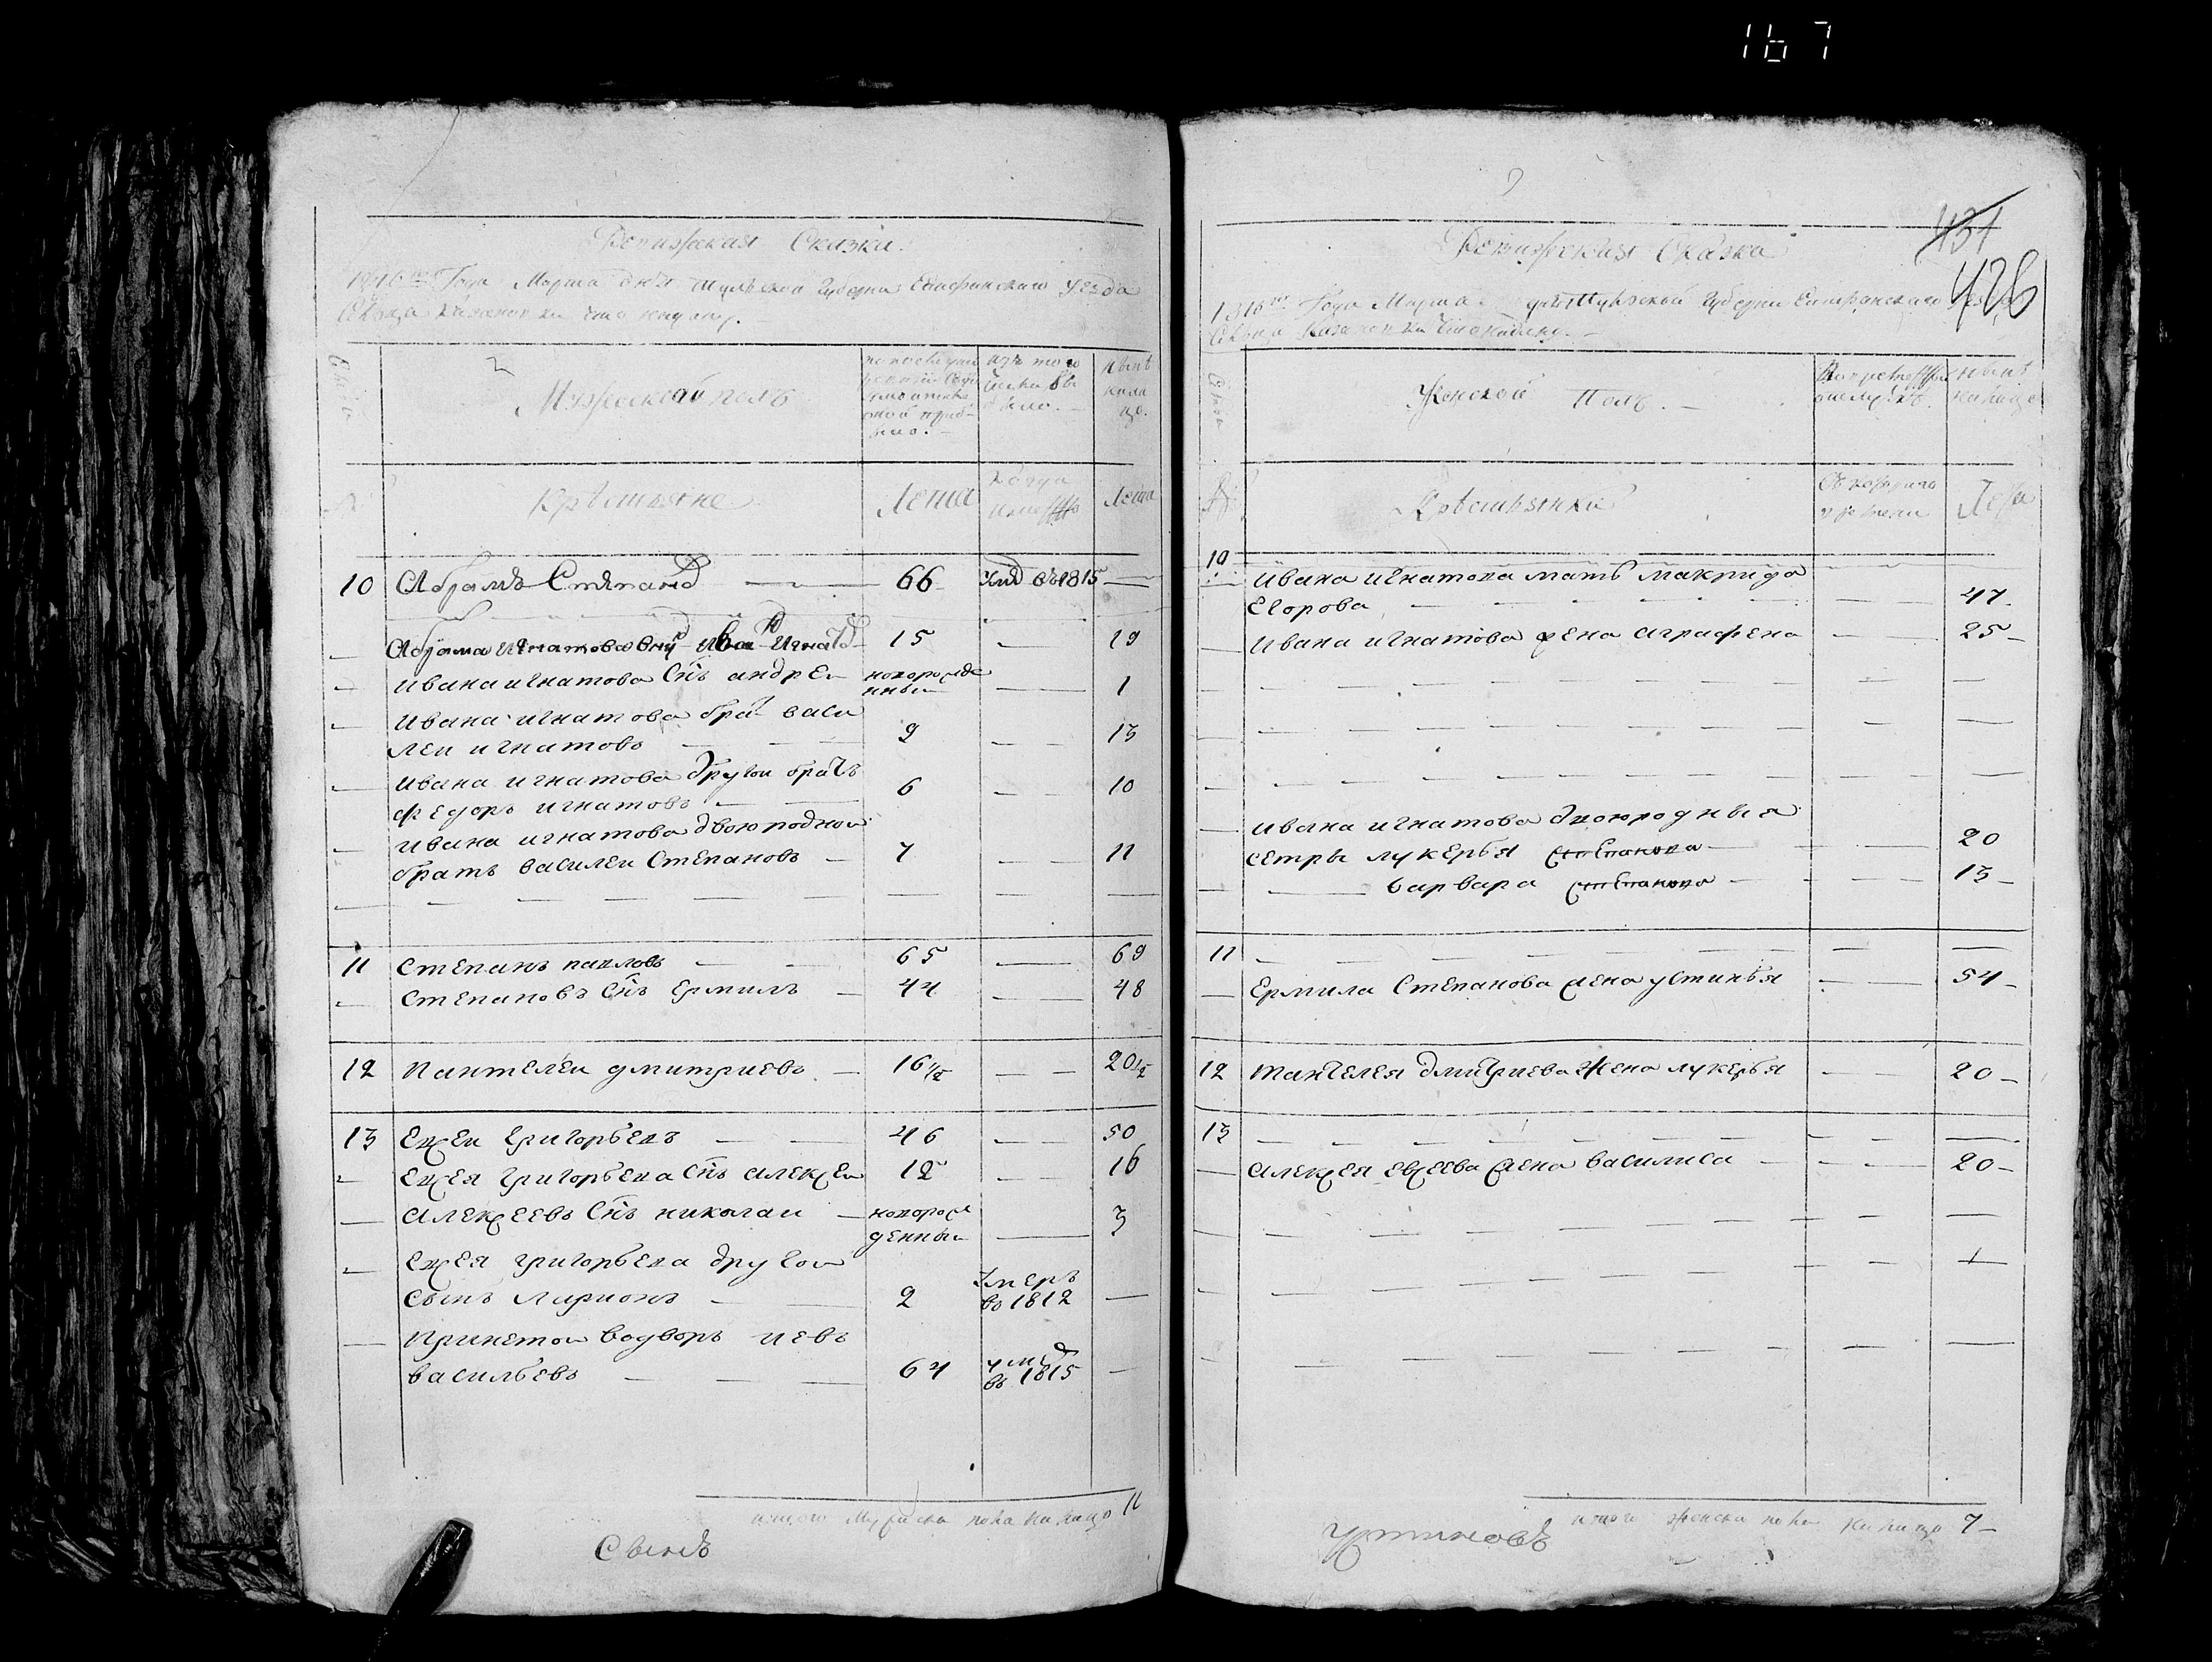 167
Ревижская Сказка.
1816го Года Марта дня Тульской Губернии Епифанскаго уезда
Сельца Казановки
Мужеской полъ
изъ того числа выбыло.
ныне на лицо.
Крѣстьяне
Лета
когда имянно
Лета
10 Абрамъ Стяпановъ — 66 умеръ въ 1815 —
— Абрама Игнатова внукъ Иванъ Игнатовъ 15 — 19
— ивана игнатова Снъ андреи новорожде
нныи — 1
— ивана игнатова братъ васи
леи игнатовъ — 9 — 13
— ивана игнатова другои братъ
федоръ игнатовъ — 6 — 10
— ивана игнатова двоюроднои
братъ василеи Степановъ — 7 — 11
11 Степанъ павловъ — 65 — 69
— Степановъ Снъ Ермилъ — 44 — 48
12 Пантелеи дмитриевъ — 16 1/2 — 20 1/2
13 Евсеи григорьевъ — 46 — 50
— Евсея григорьева Снъ алексеи 12 — 16
— алексеевъ Снъ николаи — новорож
денныи — 3
— Евсея григорьева другои
Сынъ Ларионъ — 2 умеръ
во 1812 —
— Принетои водворъ иевъ
васильевъ — 64 умеръ
въ 1815 —
итого мужеска пола на лицо 11
Сынъ
431
426
Ревижская Сказка
1816го Года Марта дня Тульской Губернии Епифанскаго уезда
Сельца Казановки
Женской Полъ.
ныне на лицо
Крѣстьянки
Лета
10 ивана игнатова мать макрида
Егорова — 47.
— ивана игнатова жена аграфена — 25 —
— ивана игнатова двоюродныя
сетры лукерья Степанова — 20
— варвара Степанова — 13 —
11
— Ермила Степанова жена устинья — 54 —
12 пантелея дмитриева жена лукерья — 20 —
13
— алексея евсеева жена василиса — 20 —
итого женска пола на лицо 7 —
Устиновъ